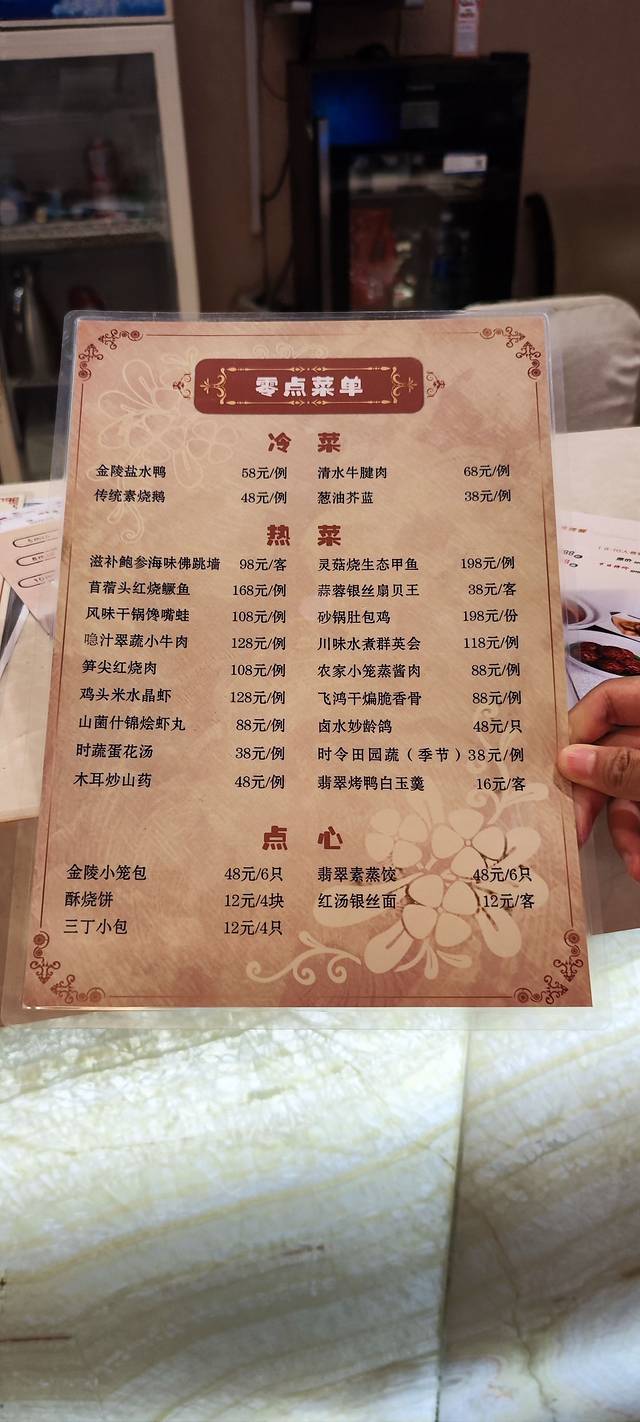 零点菜单
冷 菜
金陵盐水鸭 58元/例 清水牛腱肉 68元/例
传统素烧鹅 48元/例 葱油芥蓝 38元/例
热 菜
滋补鲍参海味佛跳墙 98元/客 灵菇烧生态甲鱼 198元/例
苜蓿头红烧鳜鱼 168元/例 蒜蓉银丝扇贝王 38元/客
风味干锅馋嘴蛙 108元/例 砂锅肚包鸡 198元/份
喼汁翠蔬小牛肉 128元/例 川味水煮群英会 118元/例
笋尖红烧肉 108元/例 农家小笼蒸酱肉 88元/例
鸡头米水晶虾 128元/例 飞鸿干煸脆香骨 88元/例
山菌什锦烩虾丸 88元/例 卤水妙龄鸽 48元/只
时蔬蛋花汤 38元/例 时令田园蔬（季节）38元/例
木耳炒山药 48元/例 翡翠烤鸭白玉羹 16元/客
点 心
金陵小笼包 48元/6只 翡翠素蒸饺 48元/6只
酥烧饼 12元/4块 红汤银丝面 12元/客
三丁小包 12元/4只